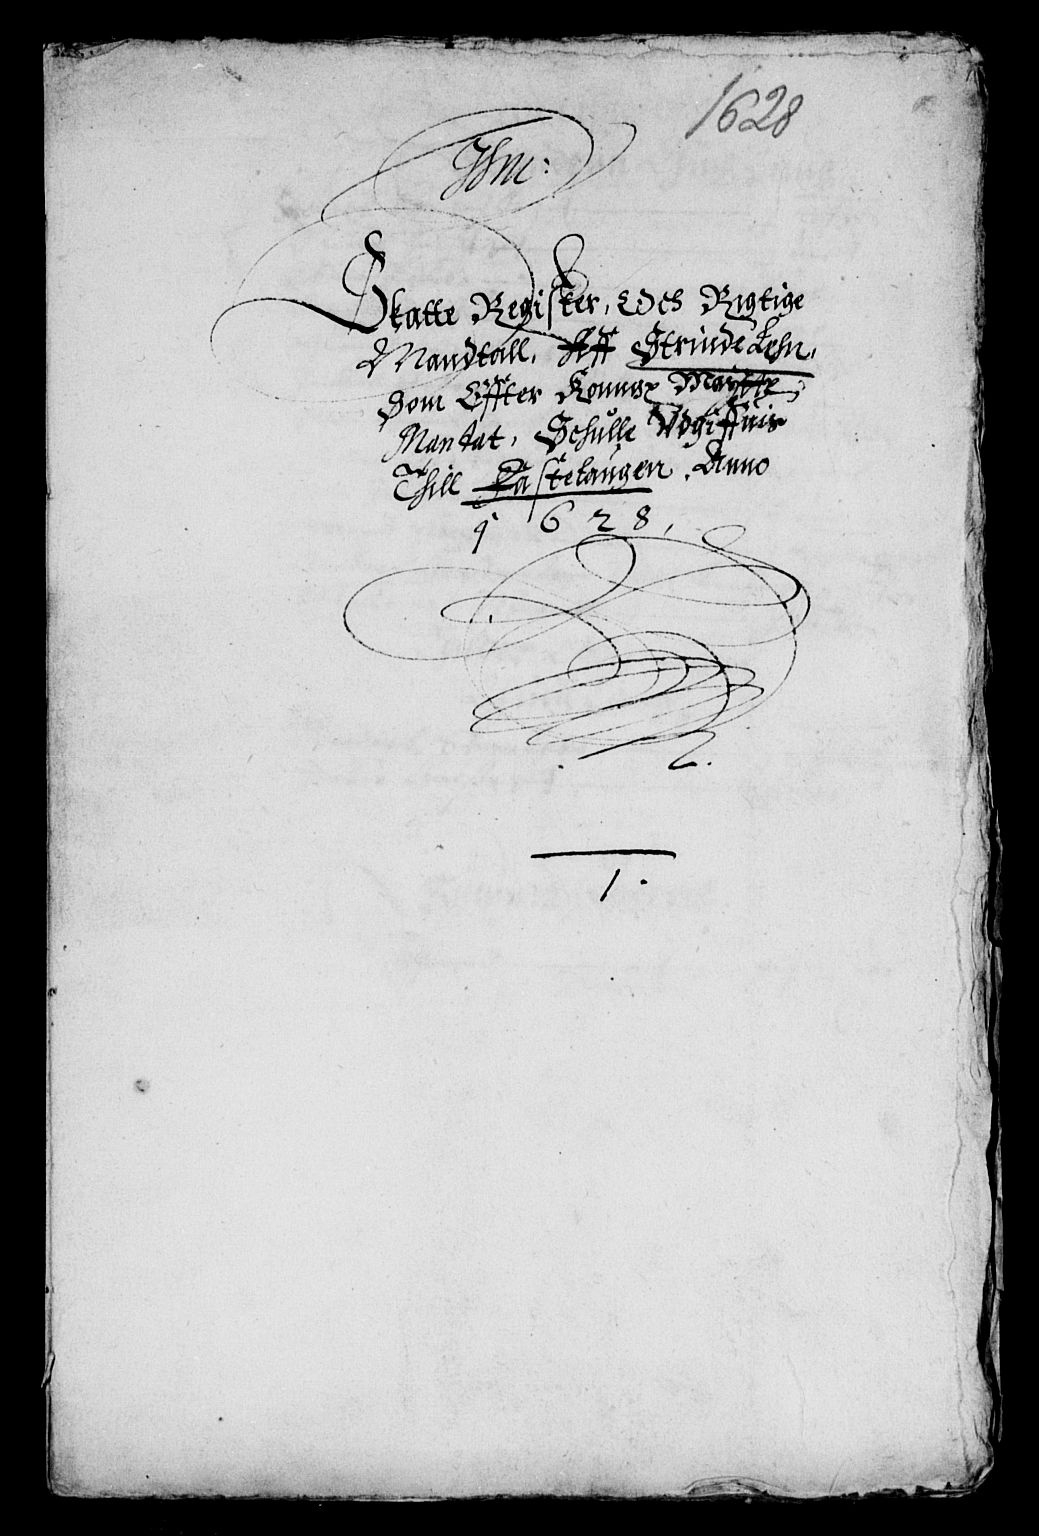 1628
Jhm:
Skatte Register, Och Rigtige
Mandtall, Aff Strinde Lehn,
Som Effter Konng: Maytts
Mantat, Schulle Vdgiffuis
Thill Fastelaugen, Anno
1628,
1.